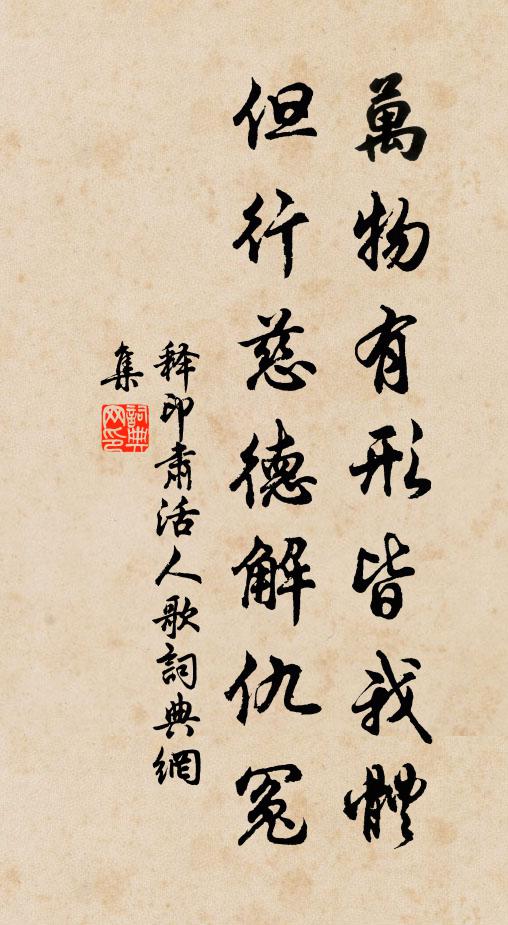 萬物有形皆我體
但行慈德解仇冤
释印肅活人歌詞典網
集
詞典网印